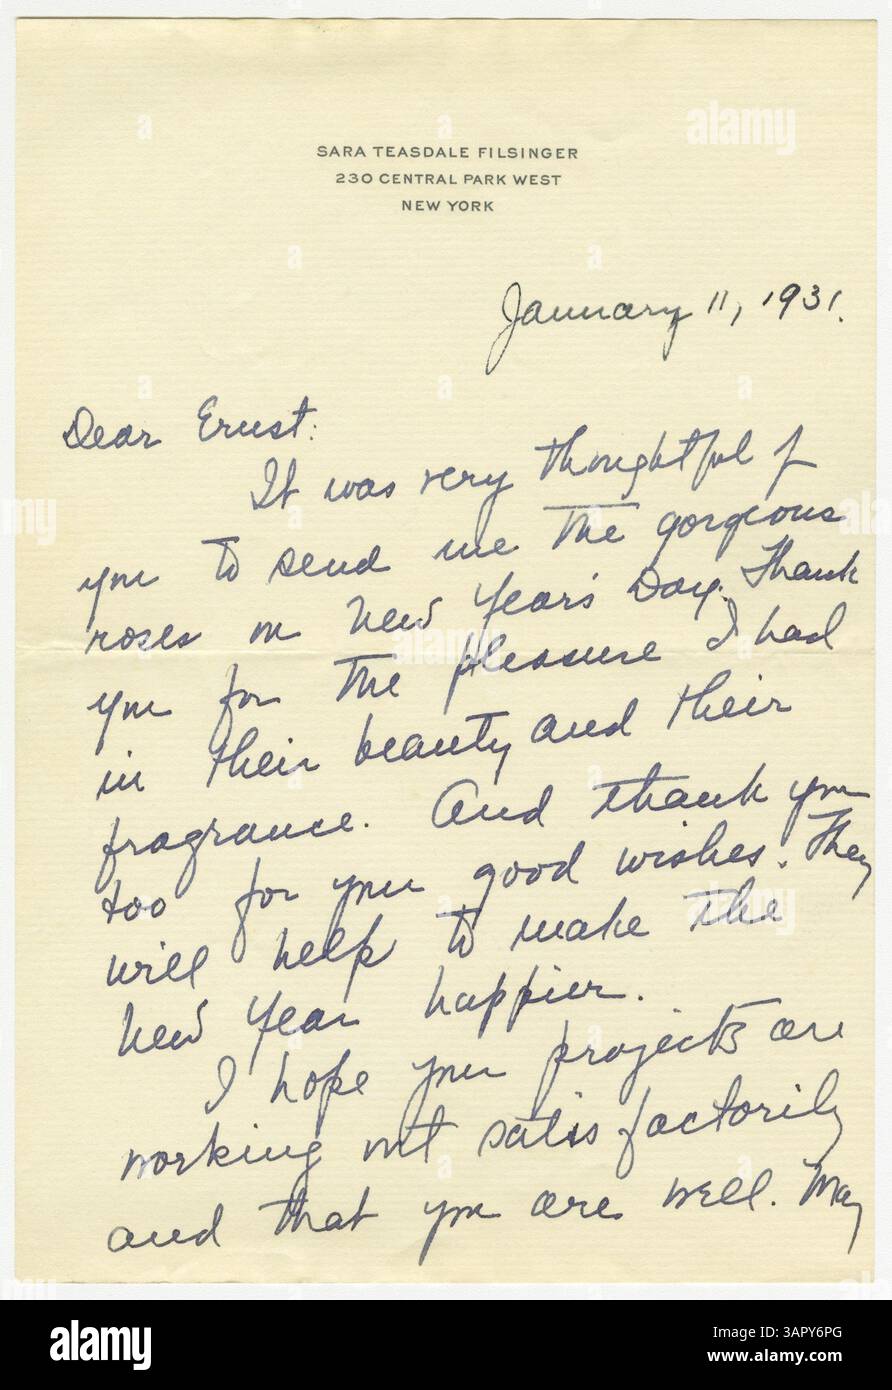 SARA TEASDALE FILSINGER
230 CENTRAL PARK WEST
NEW YORK
January 11, 1931.
Dear Ernst:
It was very thoughtful of
you to send me the gorgeous
roses on New Year's Day. Thank
you for the pleasure I had
in their beauty and their
fragrance. And thank you
too for your good wishes. They
will help to make the
New Year happier.
I hope your projects are
working out satisfactorily
and that you are well. May
alamy
Image ID: 3APY6PG
www.alamy.com